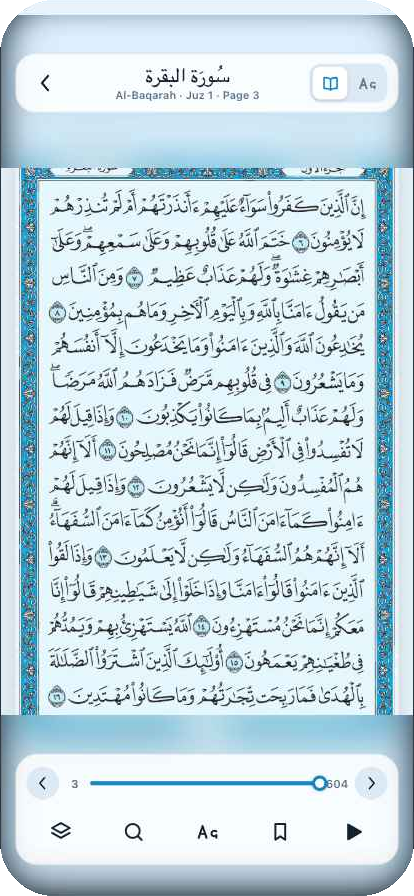 سُورَة البقرة
Al-Baqarah · Juz 1 · Page 3
Aـ
إِنَّ ٱلَّذِينَ كَفَرُوا۟ سَوَآءٌ عَلَيْهِمْ ءَأَنذَرْتَهُمْ أَمْ لَمْ تُنذِرْهُمْ
لَا يُؤْمِنُونَ ٦ خَتَمَ ٱللَّهُ عَلَىٰ قُلُوبِهِمْ وَعَلَىٰ سَمْعِهِمْ ۖ وَعَلَىٰٓ
أَبْصَٰرِهِمْ غِشَٰوَةٌ ۖ وَلَهُمْ عَذَابٌ عَظِيمٌ ٧ وَمِنَ ٱلنَّاسِ
مَن يَقُولُ ءَامَنَّا بِٱللَّهِ وَبِٱلْيَوْمِ ٱلْءَاخِرِ وَمَا هُم بِمُؤْمِنِينَ ٨
يُخَٰدِعُونَ ٱللَّهَ وَٱلَّذِينَ ءَامَنُوا۟ وَمَا يَخْدَعُونَ إِلَّآ أَنفُسَهُمْ
وَمَا يَشْعُرُونَ ٩ فِى قُلُوبِهِم مَّرَضٌ فَزَادَهُمُ ٱللَّهُ مَرَضًا ۖ
وَلَهُمْ عَذَابٌ أَلِيمٌۢ بِمَا كَانُوا۟ يَكْذِبُونَ ١٠ وَإِذَا قِيلَ لَهُمْ
لَا تُفْسِدُوا۟ فِى ٱلْأَرْضِ قَالُوٓا۟ إِنَّمَا نَحْنُ مُصْلِحُونَ ١١ أَلَآ إِنَّهُمْ
هُمُ ٱلْمُفْسِدُونَ وَلَٰكِن لَّا يَشْعُرُونَ ١٢ وَإِذَا قِيلَ لَهُمْ
ءَامِنُوا۟ كَمَآ ءَامَنَ ٱلنَّاسُ قَالُوٓا۟ أَنُؤْمِنُ كَمَآ ءَامَنَ ٱلسُّفَهَآءُ ۗ
أَلَآ إِنَّهُمْ هُمُ ٱلسُّفَهَآءُ وَلَٰكِن لَّا يَعْلَمُونَ ١٣ وَإِذَا لَقُوا۟
ٱلَّذِينَ ءَامَنُوا۟ قَالُوٓا۟ ءَامَنَّا وَإِذَا خَلَوْا۟ إِلَىٰ شَيَٰطِينِهِمْ قَالُوٓا۟ إِنَّا
مَعَكُمْ إِنَّمَا نَحْنُ مُسْتَهْزِءُونَ ١٤ ٱللَّهُ يَسْتَهْزِئُ بِهِمْ وَيَمُدُّهُمْ
فِى طُغْيَٰنِهِمْ يَعْمَهُونَ ١٥ أُو۟لَٰٓئِكَ ٱلَّذِينَ ٱشْتَرَوُا۟ ٱلضَّلَٰلَةَ
بِٱلْهُدَىٰ فَمَا رَبِحَت تِّجَٰرَتُهُمْ وَمَا كَانُوا۟ مُهْتَدِينَ ١٦
3 604